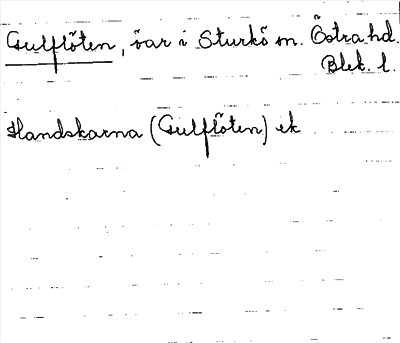 Gulflöten, öar i Sturkö sn. Östra hd.
Blek. l.
Handskarna (Gulflöten) ek